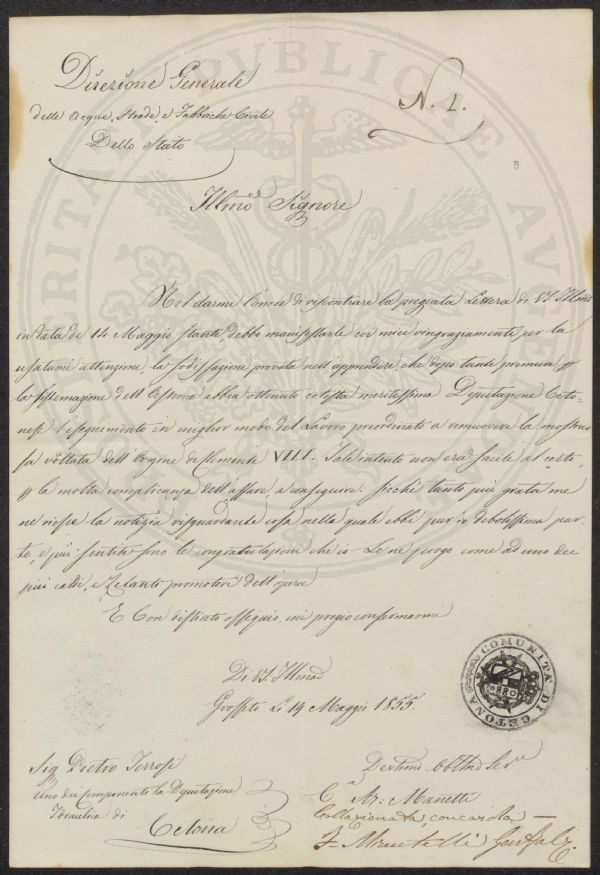 Direzione Generale
delle Acque, Strade, e Fabbriche Civili
Dello Stato
N. 1.
Illmo Signore
Nel darmi l'onore di riscontrare la pregiata Lettera di VS. Illma
in data de 14 Maggio stante, debbo manifestarle coi miei ringraziamenti per la
usatami attenzione, la sodisfazione provata nell'apprendere, che dopo tante premure p
la sistemazione dell'Astrone abbia ottenuto cotesta meritissima Deputazione Ceto-
nese l'eseguimento in miglior modo del Lavoro preordinato a remuovere la mostruo
sa voltata dell'Argine di Clemente VIII. Tale intento non era facile al certo,
p la molta complicanza dell'affare, a conseguire. Sicchè tanto più grata me
ne riesce la notizia risguardante cosa nella quale ebbi pur io debolissima par
te, e più sentite sono le congratulazioni che io Le ne porgo come ad uno dei
più caldi, e zelanti promotori dell'opera
E Con distinto ossequio mi pregio confermarmi
Di VS. Illma
Grosseto Li 19 Maggio 1855.
COMUNITA' DI CETONA
Sig Pietro Terrosi
Uno dei componenti la Deputazione
Idraulica di
Cetona
Devmo Obblmo Servre
C Az: Manetti
Collazionata, concorda